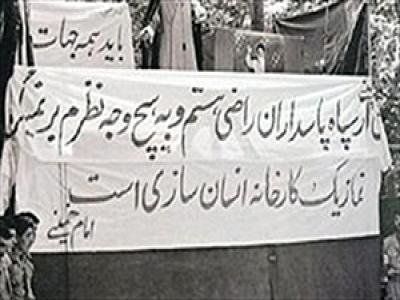 باید همه جهات
از سپاه پاسداران راضی هستم و به هیچ وجه نظرم بر نمیگردد
نماز یک کارخانه انسان سازی است
امام خمینی